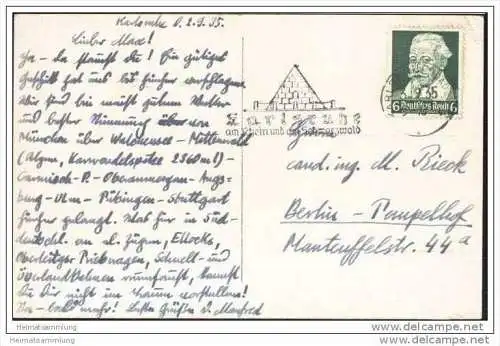 Karlsruhe d. 2.9.35.
Lieber Max!
Ja - da staunste du! Ein gütiges
Geschick hat uns bis hierher verschlagen.
Wir sind bei meist gutem Wetter
und bester Stimmung über
München über Walchensee - Mittenwald
(Alpen, Karwendelspitze 2360 m!) -
Garmisch-P. - Oberammergau - Augs-
burg - Ulm - Tübingen - Stuttgart
hierher gelangt. Was hier in Süd-
deutschl. an el. Zügen, Ellocks,
Oberleitgs. Triebwagen, Schnell- und
Überlandbahnen rumsaust, kannst
Du Dir nicht im Traum vorstellen!
Na - bald mehr! Beste Grüße v. Manfred
Karlsruhe
am Rhein und am Schwarzwald
Deutsches Reich
6 6
Herrn
cand. ing. M. Rieck
Berlin - Tempelhof
Manteuffelstr. 44a
Heimatsammlung
Heimatsammlung.de
Heimatsammlung
Heimatsammlung.de